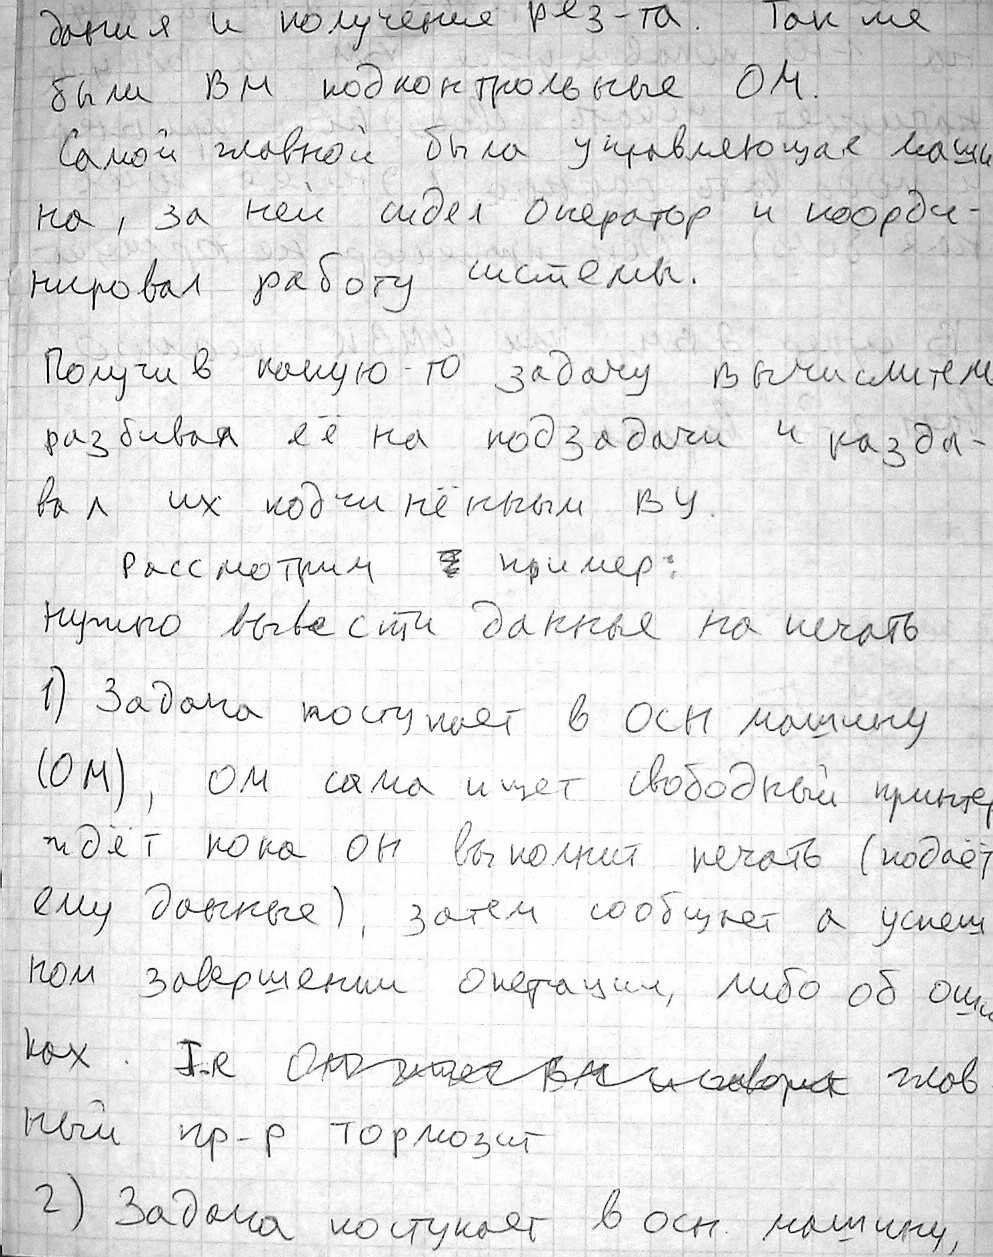 дания и получение рез-та. Так же
были ВМ подконтрольные ОМ.
Самой главной была управляющая маши
на, за ней сидел оператор и коорди-
нировал работу системы.
Получив какую-то задачу вычислител
разбивал её на подзадачи и разда-
вал их подчинённым ВУ.
Рассмотрим пример:
нужно вывести данные на печать
1) Задача поступает в осн машину
(ОМ), ОМ сама ищет свободный принтер
ждёт пока он выполнит печать (подаёт
ему данные), затем сообщает а успеш
ном завершении операции, либо об оши
ках. Т.е глав
ный пр-р тормозит
2) Задача поступает в осн. машину,